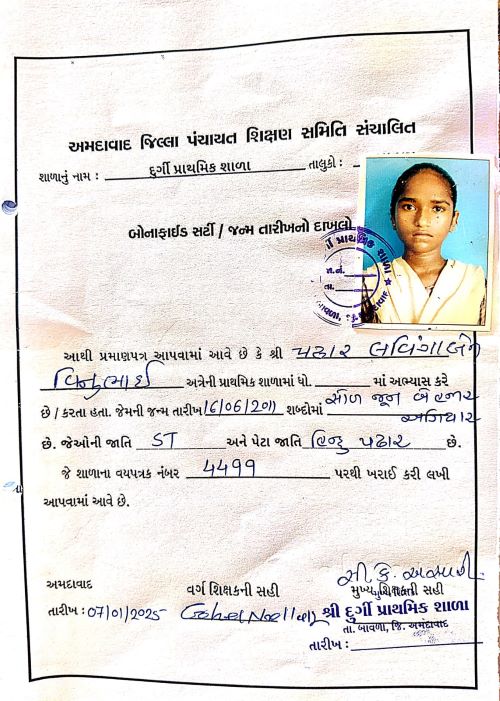 અમદાવાદ જિલ્લા પંચાયત શિક્ષણ સમિતિ સંચાલિત
શાળાનું નામ : દુર્ગી પ્રાથમિક શાળા તાલુકો :
બોનાફાઈડ સર્ટી / જન્મ તારીખનો દાખલો
આથી પ્રમાણપત્ર આપવામાં આવે છે કે શ્રી પઢાર લવિંગાબેન
વિનુભાઈ અત્રેની પ્રાથમિક શાળામાં ધો. માં અભ્યાસ કરે
છે / કરતા હતા. જેમની જન્મ તારીખ 16/06/2011 શબ્દોમાં સોળ જૂન બે હજાર
અગિયાર
છે. જેઓની જાતિ ST અને પેટા જાતિ હિન્દુ પઢાર છે.
જે શાળાના વયપત્રક નંબર 4499 પરથી ખરાઈ કરી લખી
આપવામાં આવે છે.
અમદાવાદ વર્ગ શિક્ષકની સહી મુખ્ય શિક્ષકની સહી
તારીખ : 07/01/2025 શ્રી દુર્ગી પ્રાથમિક શાળા
તા. બાવળા, જિ. અમદાવાદ
તારીખ :